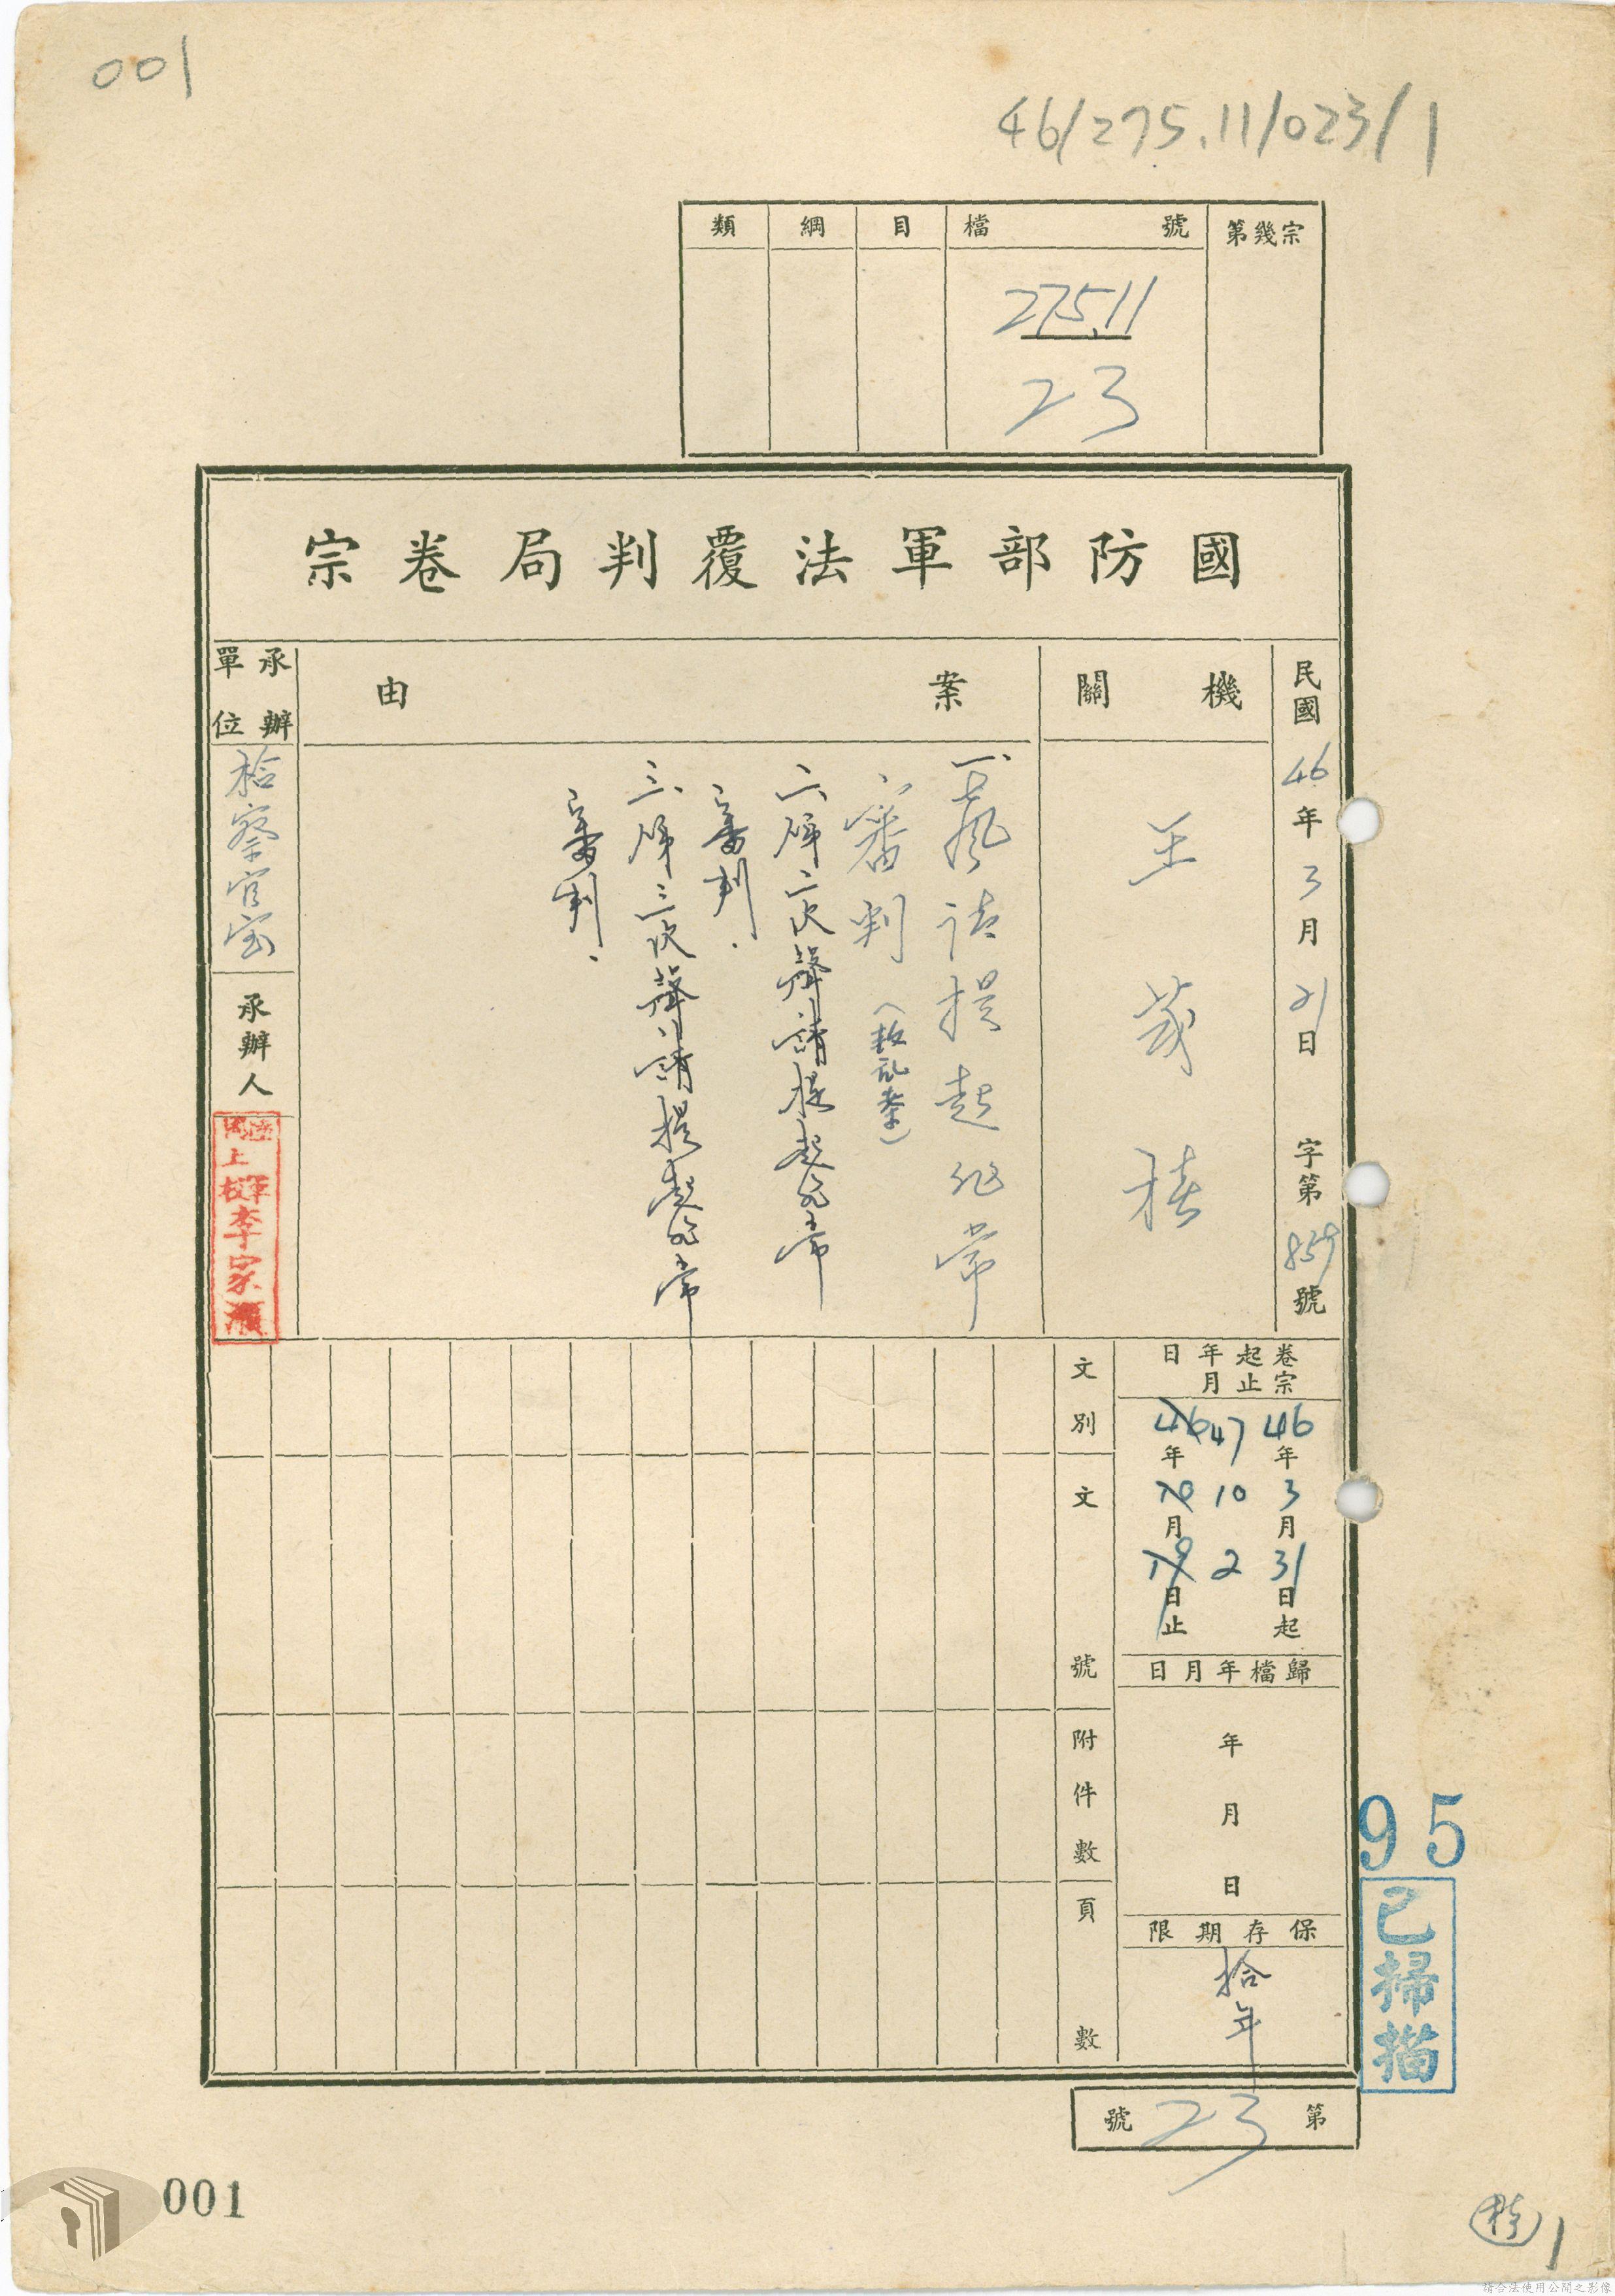 001
46/275.11/023/1
類 綱 目 檔號 第幾宗
275.11
23
國防部軍法覆判局卷宗
民國46年3月21日 字第859號
機關
王茂禧
案由
一、
請提起非常
審判(叛乱案)
二、第二次聲請提起非常
審判.
三、第三次聲請提起非常
審判.
承辦單位
檢察官室
承辦人
上校 李家
卷宗起止年月日
46年3月31日起
47 10 2
年月日止
歸檔年月日
年月日
保存期限
拾年
文別
文號
附件數
頁數
第23號
95
已掃描
001
1
請合法使用公開之影像